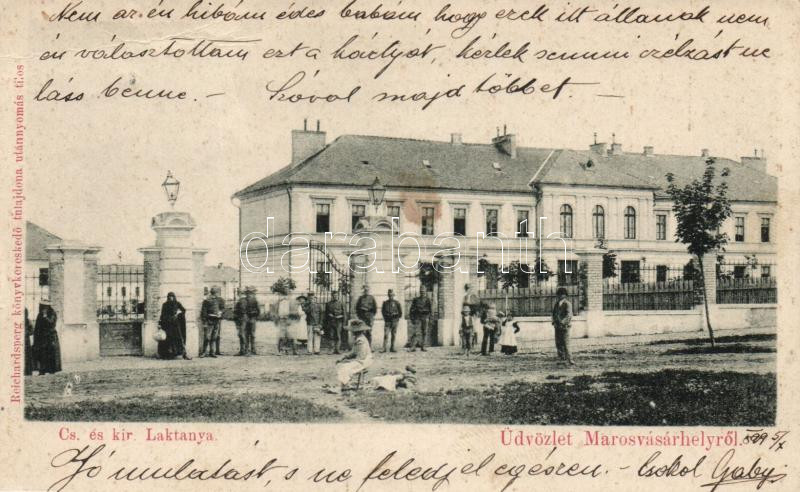 Nem az én hibám édes babám hogy ezek itt állanak nem
én választottam ezt a kártyát, kérlek semmi célzást ne
láss benne. – Szóval majd többet. –
Reichardsperg könyvkereskedő tulajdona, utánnyomás tilos
databanth
Cs. és kir. Laktanya.
Üdvözlet Marosvásárhelyről.
899 5/X
Jó mulatást, s ne feledjel egészen. – Csókol Gaby